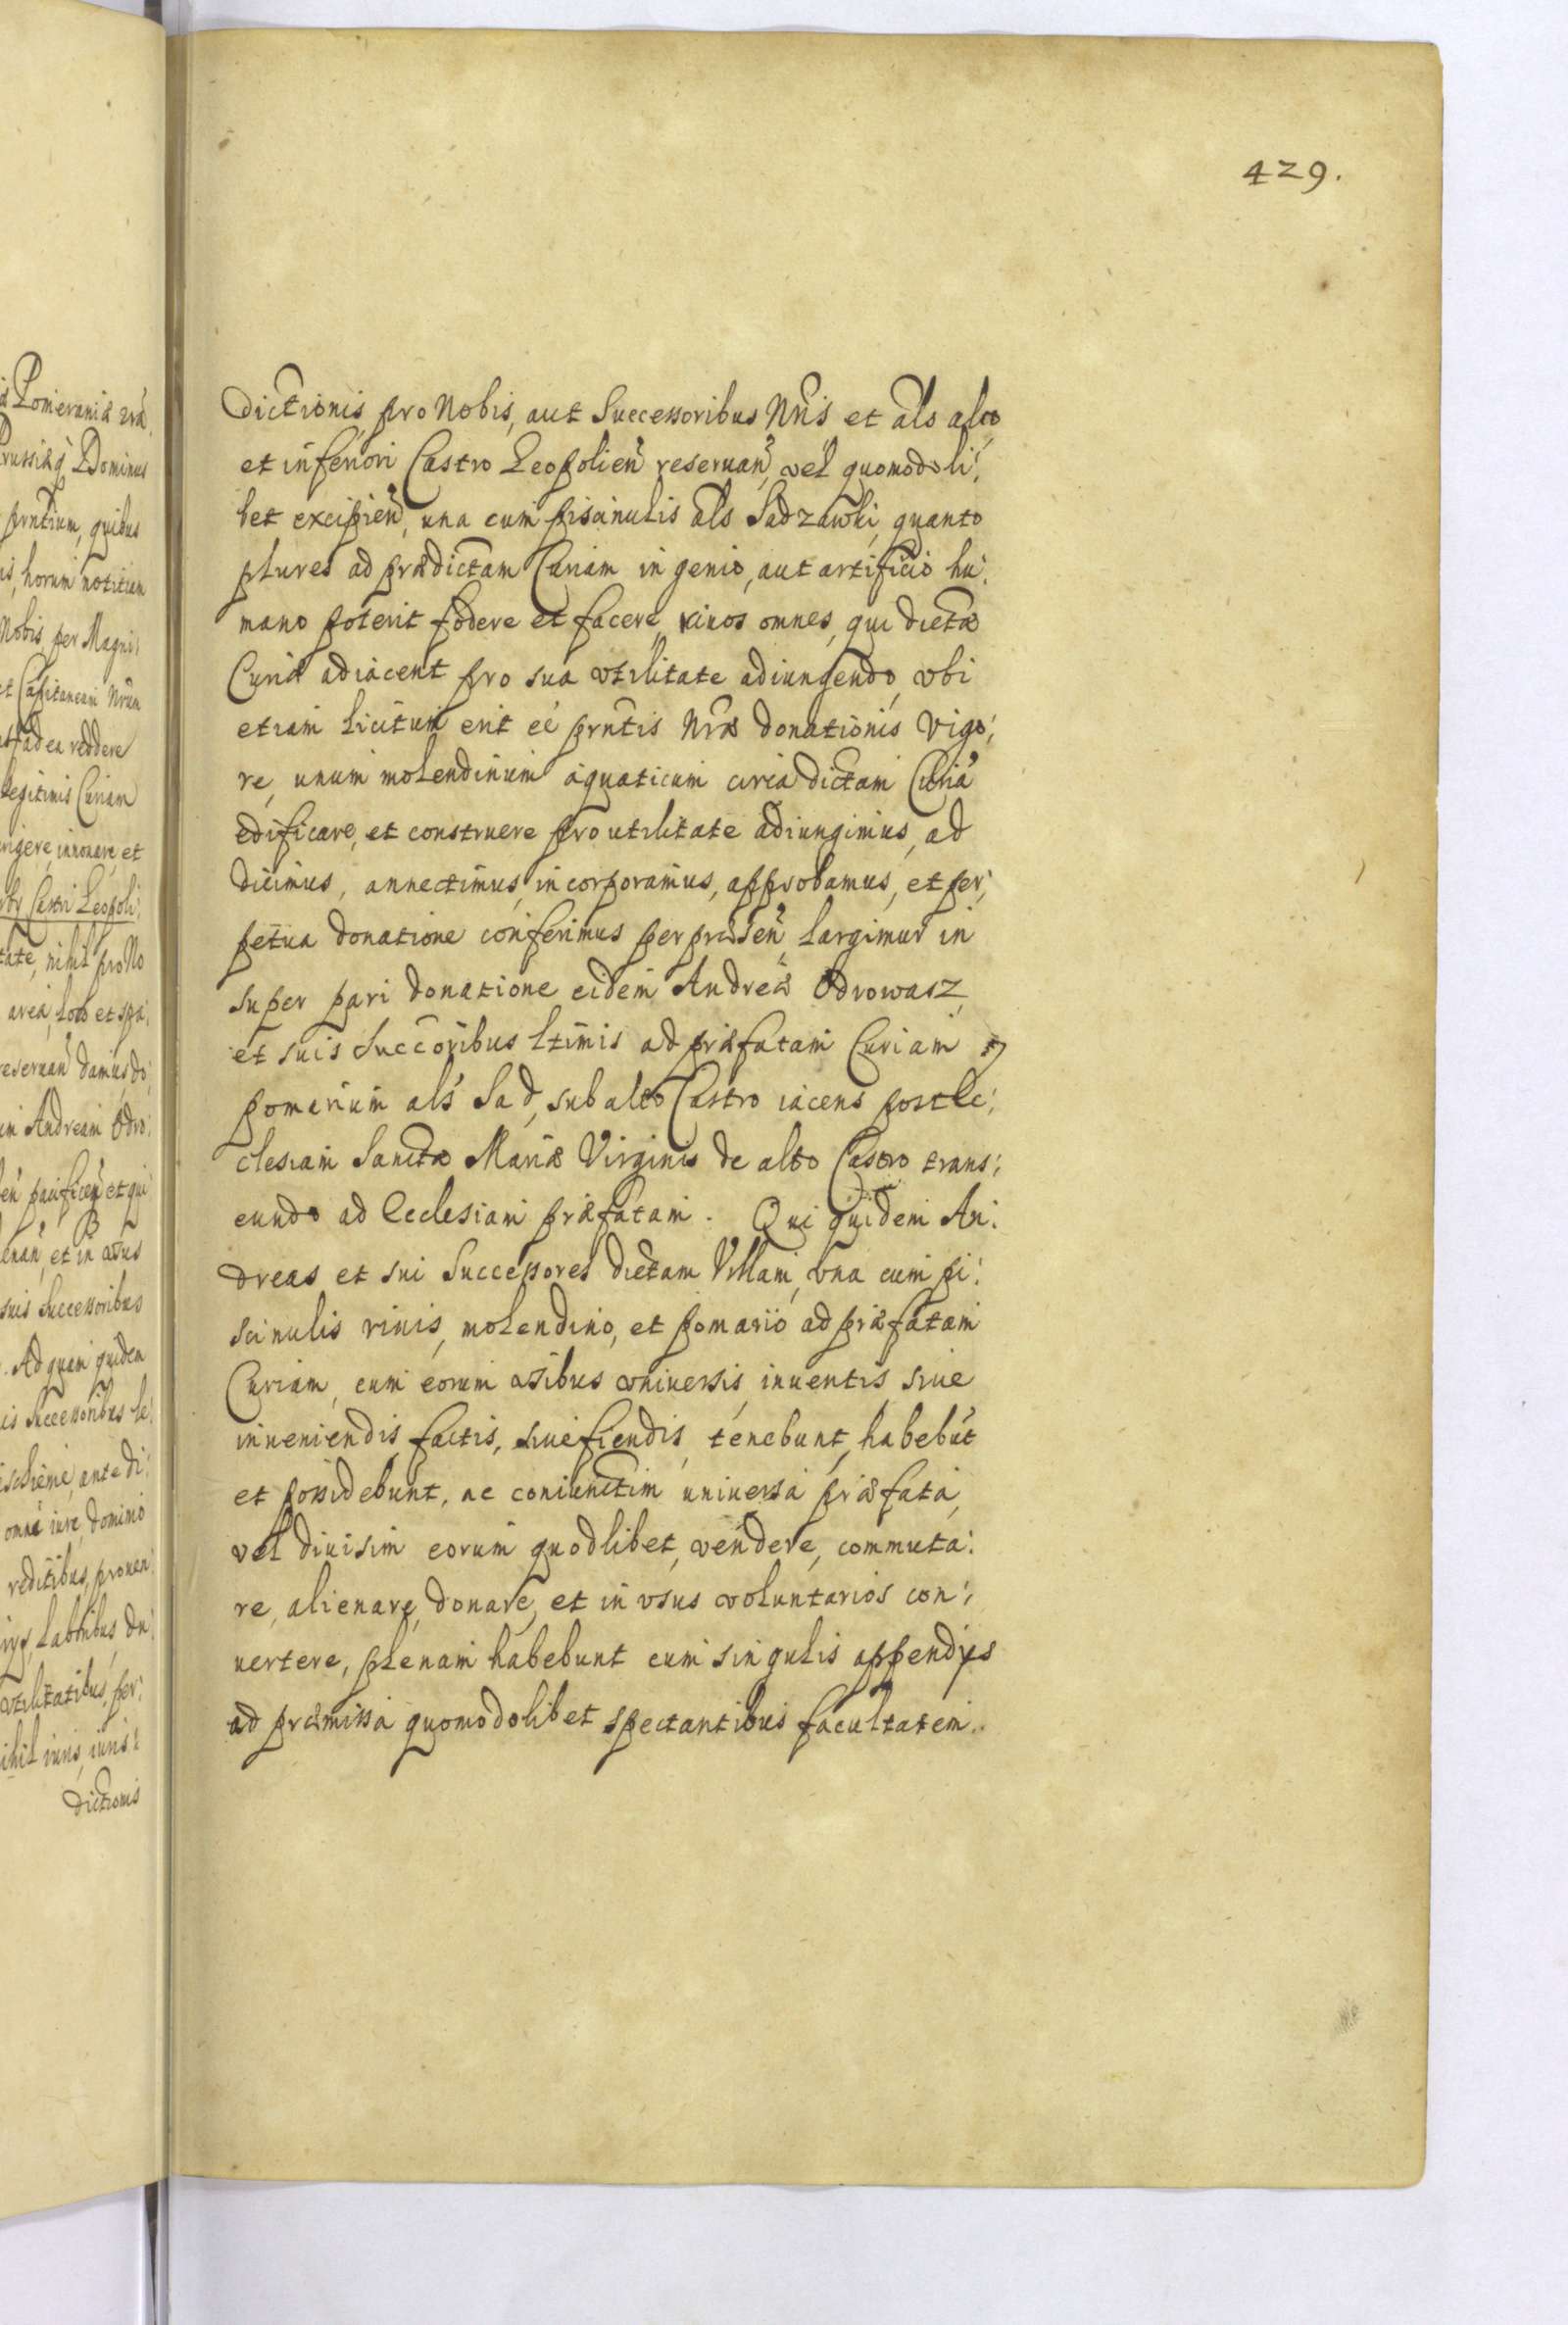 429.
dictionis, pro Nobis, aut Successoribus Nris et als alto
et inferiori Castro Leopolien reseruan, vel quomodoli:
bet excipien, una cum piscinulis als Sadzawki, quanto
plures ad prædictam Curiam in genio, aut artificio hu:
mano poterit fodere et facere, riuos omnes, qui dictæ
Curiæ adiacent pro sua vtilitate adiungendo, vbi
etiam licitum erit ei prntis Nræ donationis vigo:
re, unum molendinum aquaticum circa dictam Curiã
edificare, et construere pro utilitate adiungimus, ad
dicimus, annectimus, incorporamus, approbamus, et per:
petua donatione conferimus per præsen, largimur in
super pari donatione eidem Andreæ Odrowasz,
et suis Succoribus ltimis ad præfatam Curiam
pomarium als Sad, sub alto Castro iacens post Ec:
clesiam Sanctæ Mariæ Virginis de alto Castro trans:
eundo ad Ecclesiam præfatam. Qui quidem An:
dreas et sui Successores dictam Villam, vna cum pi:
scinulis riuis, molendino, et pomario ad præfatam
Curiam, cum eorum vsibus vniuersis, inuentis siue
inueniendis, factis, siue fiendis, tenebunt, habebũt
et possidebunt, ac coniunctim uniuersa præfata,
vel diuisim eorum quodlibet, vendere, commuta:
re, alienare, donare, et in vsus voluntarios con:
uertere, plenam habebunt cum singulis appendys
ad præmissa quomodolibet spectantibus facultatem.
Pomeraniæ
Dominus
prntium, quibus
horum notitiam
Nobis per Magni:
et Capitaneum Nrum
ad ea reddere
legitimis Curiam
et
Castri Leopoli:
nihil pro No
area, loco et spa:
reseruan damus, do:
Andream Odro:
pacificen et qui
et in vsus
suis Successoribus
Ad quam quidem
Successoribus le:
ante di:
omne iure, dominio
reditibus, prouen:
laboribus, du:
vtilitatibus, per:
iuris, iuris:
dictionis